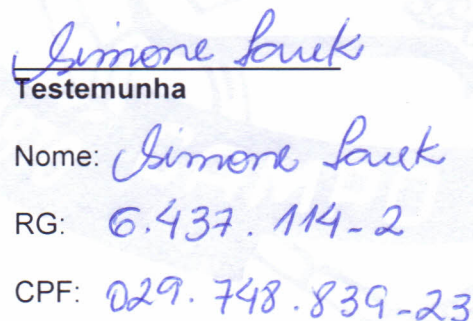 Simone Sauek
Testemunha
Nome: Simone Sauek
RG: 6.437.114-2
CPF: 029.748.839-23